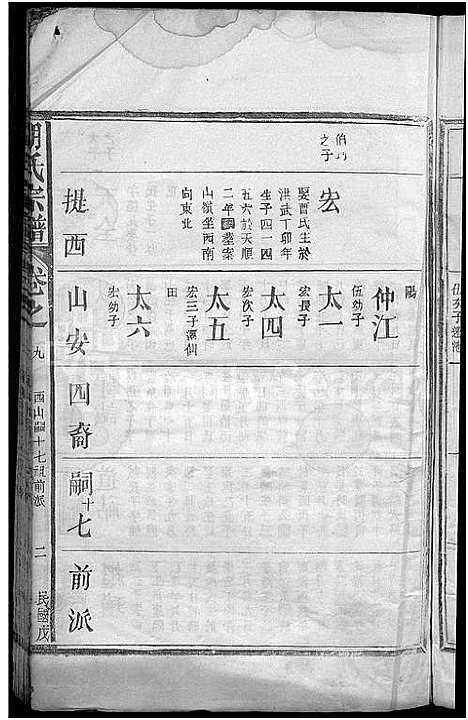 之子
宏
娶曹氏生於
洪武丁卯年
生子四一四
五六於天順
二年國塟案
山嶺坐西南
向東北
提西
陽
仲江
伍幼子
太一
宏長子
太四
宏次子
太五
宏三子遷仙
田
太六
宏幼子
山安
四裔
嗣十七
前派
氏宗譜
卷之
九
西山嗣十七祖前派
二
民國戊